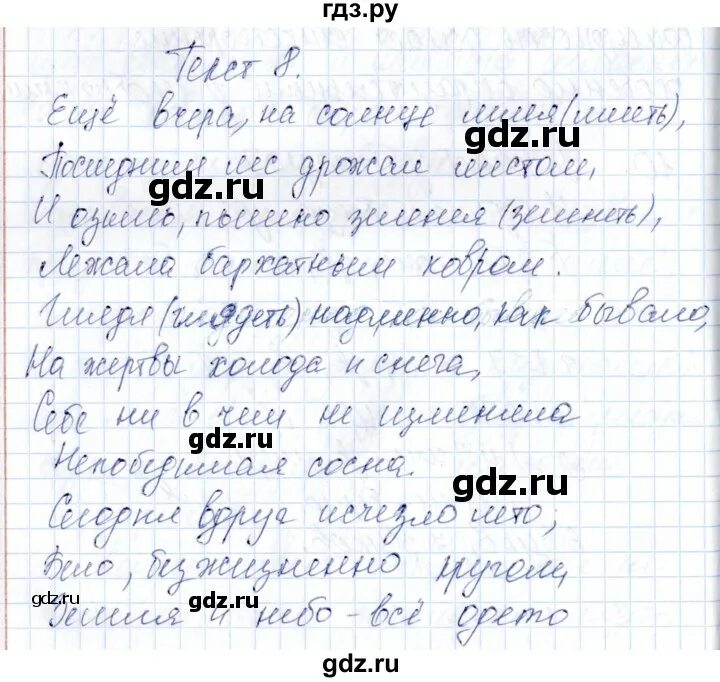 гдз.ру
Текст 8.
Ещё вчера, на солнце млея (млеть),
Последним лес дрожал листом,
И озимь, пышно зеленея (зеленеть),
Лежала бархатным ковром.
Глядя (глядеть) надменно, как бывало,
На жертвы холода и снега,
Себе ни в чём не изменяла
Непобедимая сосна.
Сегодня вдруг исчезло лето;
Бело, безжизненно кругом,
Земля и небо - всё одето
gdz.ru
gdz.ru
gdz.ru
gdz.ru
gdz.ru
gdz.ru
gdz.ru